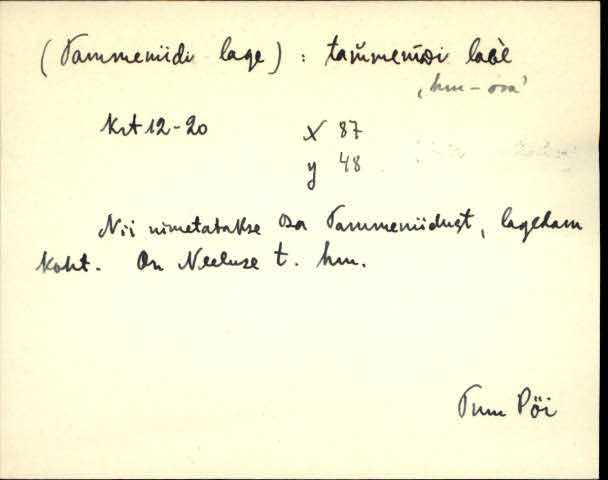 (Tammeniidi lage) : tam̆meni̮i̮di laGè
'hm - osa'
Krt 12-20 X 87
y 48
Nii nimetatakse osa Tammeniidust, lagedam
koht. On Neeluse t. hm.
Tum Pöi